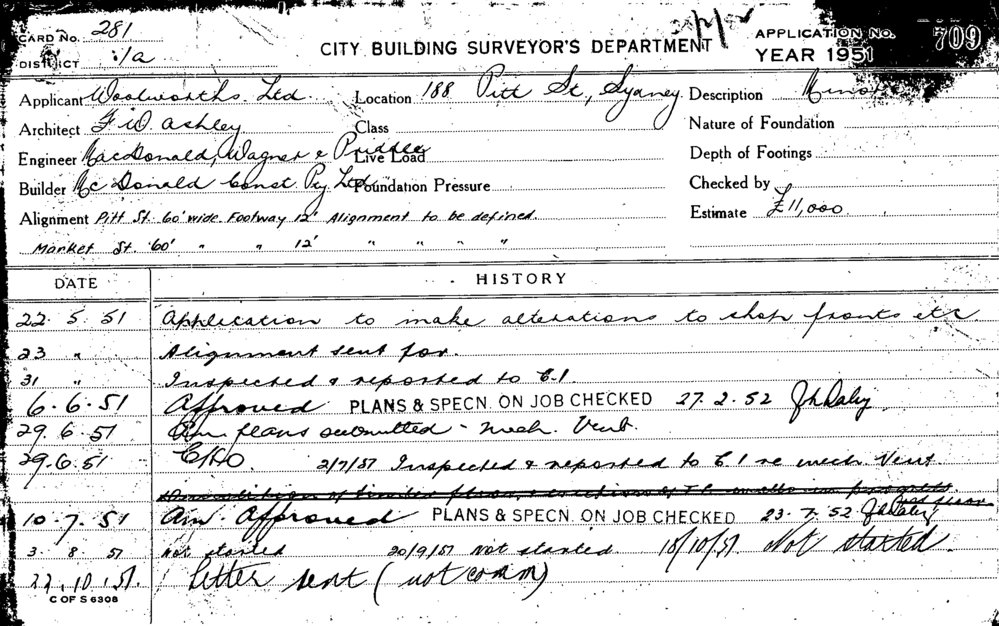 CARD No. 281
DISTRICT :/a
CITY BUILDING SURVEYOR'S DEPARTMENT
APPLICATION No. 709
YEAR 1951
Applicant Woolworths. Ltd. Location 188 Pitt St., Sydney. Description Minor
Architect F.W. Ashley Class Nature of Foundation
Engineer MacDonald, Wagner & Priddle Live Load Depth of Footings
Builder McDonald Const Py. Ltd Foundation Pressure Checked by
Alignment Pitt St. 60' wide Footway 12' Alignment to be defined. Estimate £11,000
Market St. 60' " " 12' " " " "
DATE HISTORY
22. 5. 51 Application to make alterations to shop fronts etc
23 " Alignment sent for.
31 " Inspected & reported to C.I.
6.6.51 Approved PLANS & SPECN. ON JOB CHECKED 27. 2. 52
29.6.51 Am plans submitted - mech. Vent.
29.6.51 CHO. 2/7/51 Inspected & reported to C.I re mech Vent.
10.7.51 Am. Approved PLANS & SPECN. ON JOB CHECKED 23. 7. 52
3. 8. 51 Not started 20/9/51 Not started 18/10/51 Not started.
22.10.51. Letter sent (not comm)
C OF S 6308